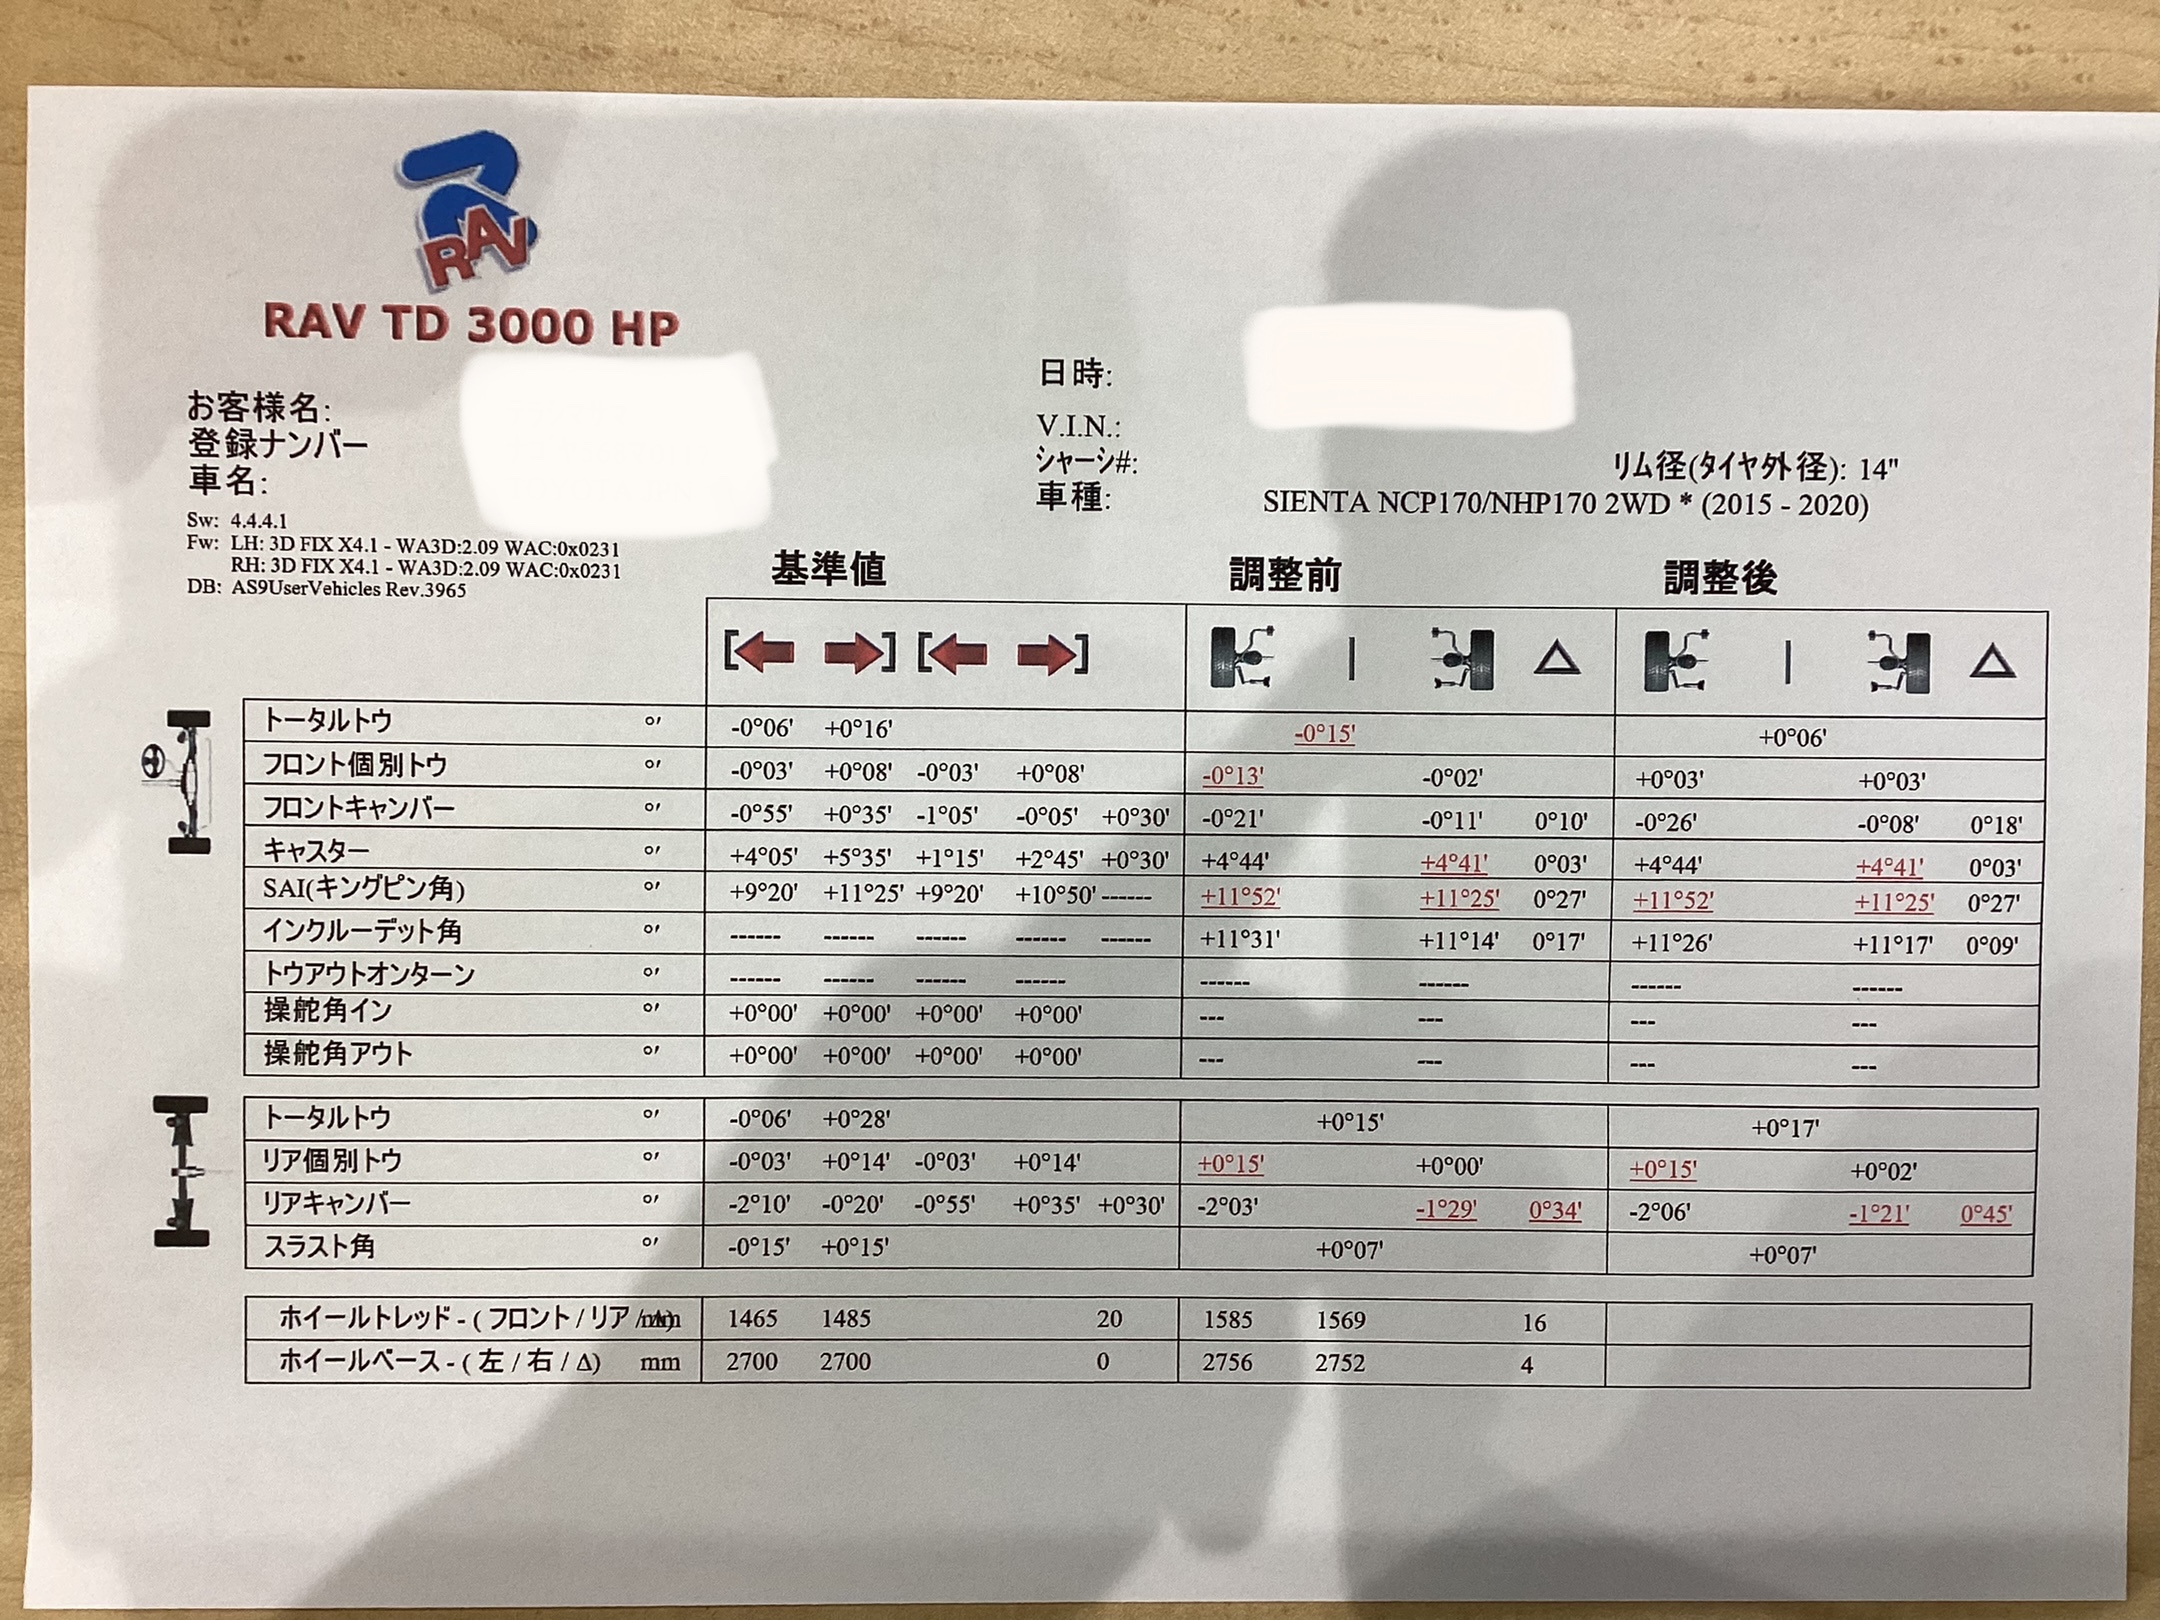 RAV
RAV TD 3000 HP
お客様名:
登録ナンバー
車名:
日時:
V.I.N.:
シャーシ#:
車種:
リム径(タイヤ外径): 14"
SIENTA NCP170/NHP170 2WD * (2015 - 2020)
Sw: 4.4.4.1
Fw: LH: 3D FIX X4.1 - WA3D:2.09 WAC:0x0231
RH: 3D FIX X4.1 - WA3D:2.09 WAC:0x0231
DB: AS9UserVehicles Rev.3965
基準値 調整前 調整後
[ ] [ ] | △ | △
トータルトウ °' -0°06' +0°16' -0°15' +0°06'
フロント個別トウ °' -0°03' +0°08' -0°03' +0°08' -0°13' -0°02' +0°03' +0°03'
フロントキャンバー °' -0°55' +0°35' -1°05' -0°05' +0°30' -0°21' -0°11' 0°10' -0°26' -0°08' 0°18'
キャスター °' +4°05' +5°35' +1°15' +2°45' +0°30' +4°44' +4°41' 0°03' +4°44' +4°41' 0°03'
SAI(キングピン角) °' +9°20' +11°25' +9°20' +10°50' ------ +11°52' +11°25' 0°27' +11°52' +11°25' 0°27'
インクルーデット角 °' ------ ------ ------ ------ ------ +11°31' +11°14' 0°17' +11°26' +11°17' 0°09'
トウアウトオンターン °' ------ ------ ------ ------ ------ ------ ------ ------
操舵角イン °' +0°00' +0°00' +0°00' +0°00' --- --- --- ---
操舵角アウト °' +0°00' +0°00' +0°00' +0°00' --- --- --- ---
トータルトウ °' -0°06' +0°28' +0°15' +0°17'
リア個別トウ °' -0°03' +0°14' -0°03' +0°14' +0°15' +0°00' +0°15' +0°02'
リアキャンバー °' -2°10' -0°20' -0°55' +0°35' +0°30' -2°03' -1°29' 0°34' -2°06' -1°21' 0°45'
スラスト角 °' -0°15' +0°15' +0°07' +0°07'
ホイールトレッド - ( フロント / リア / Δ) mm 1465 1485 20 1585 1569 16
ホイールベース - ( 左 / 右 / Δ) mm 2700 2700 0 2756 2752 4